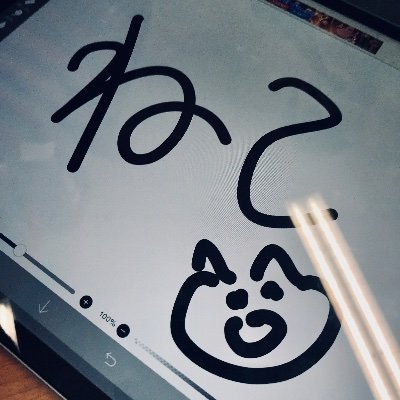 ねこ
100%